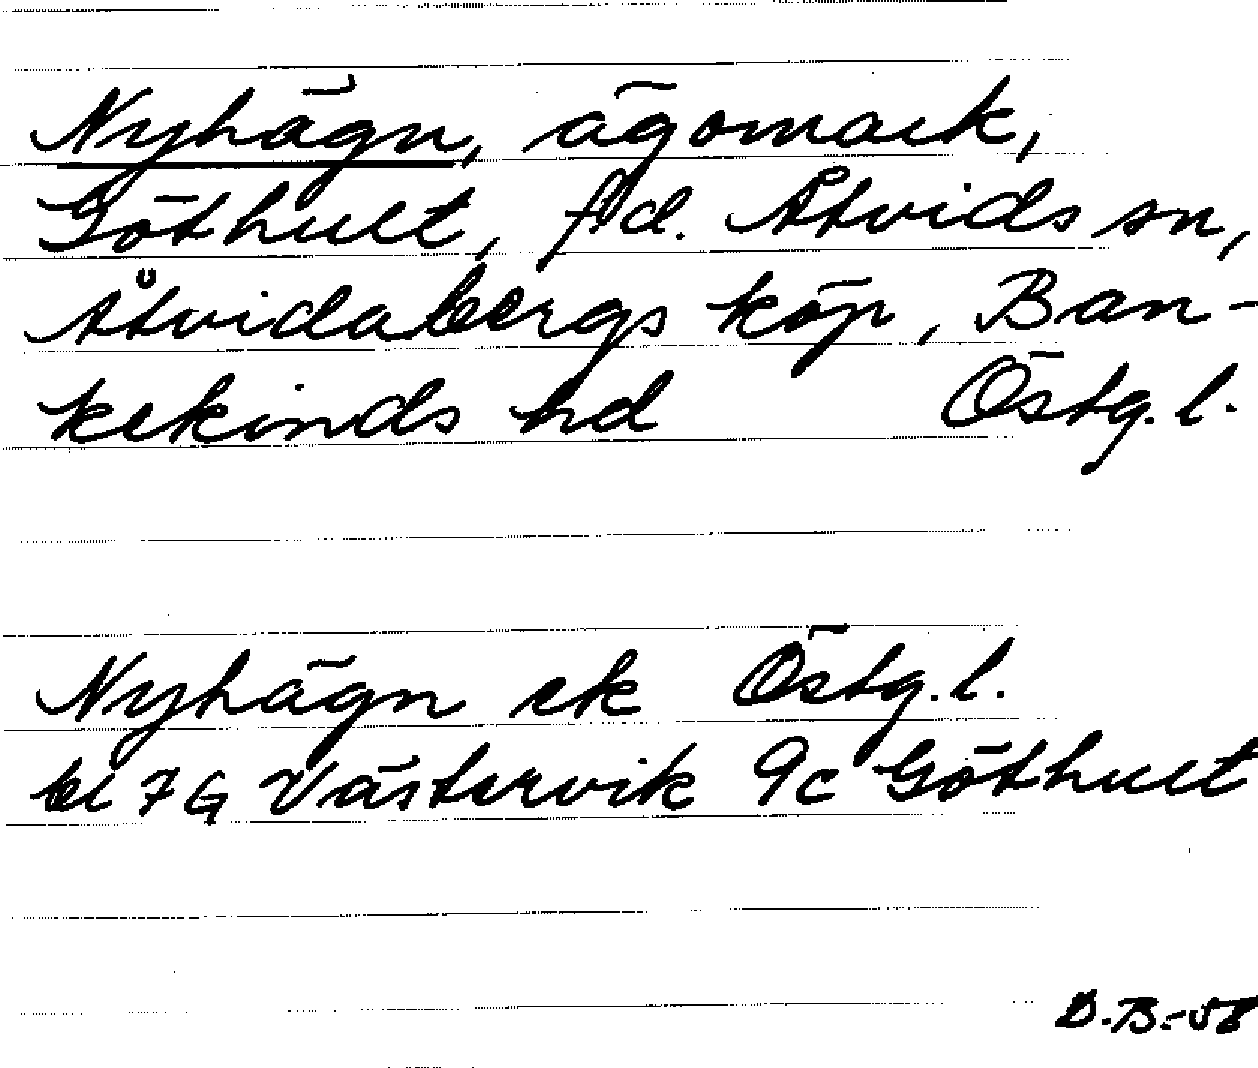 Nyhägn, ägomark,
Göthult, f.d. Åtvids sn,
Åtvidabergs köp, Ban-
kekinds hd Östg. l.
Nyhägn ek Östg. l.
bl 7G Västervik 9c Göthult
B.B.-58